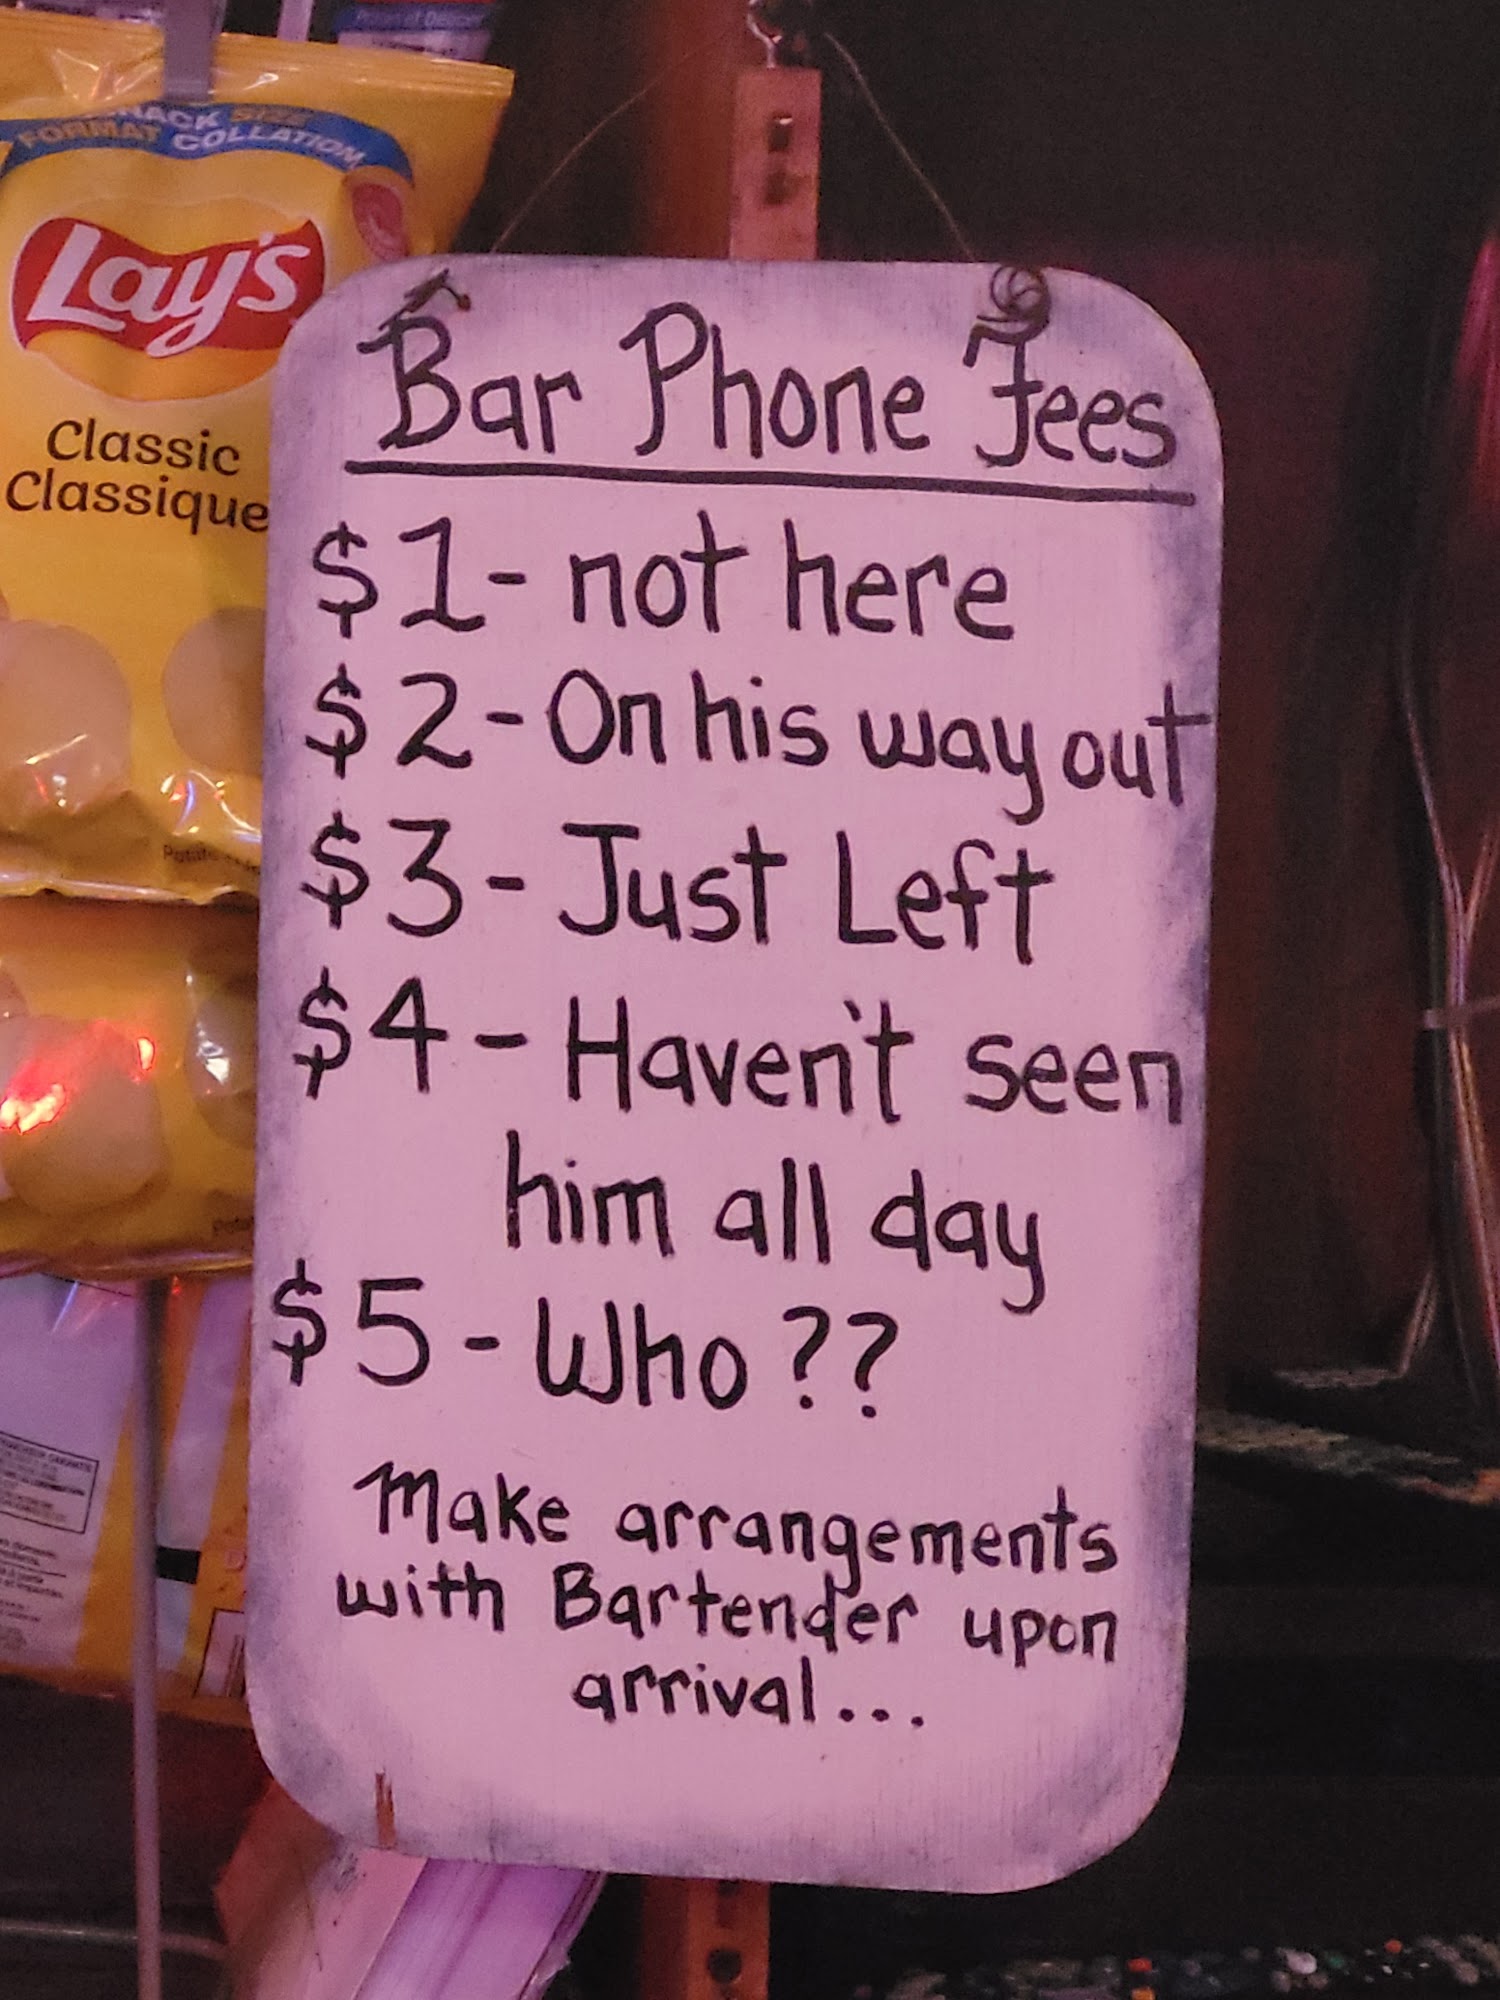 SNACK SIZE
FORMAT COLLATION
Lay's
Classic
Classique
Bar Phone Fees
$1- not here
$2- On his way out
$3- Just Left
$4- Haven't seen
him all day
$5- Who??
Make arrangements
with Bartender upon
arrival...